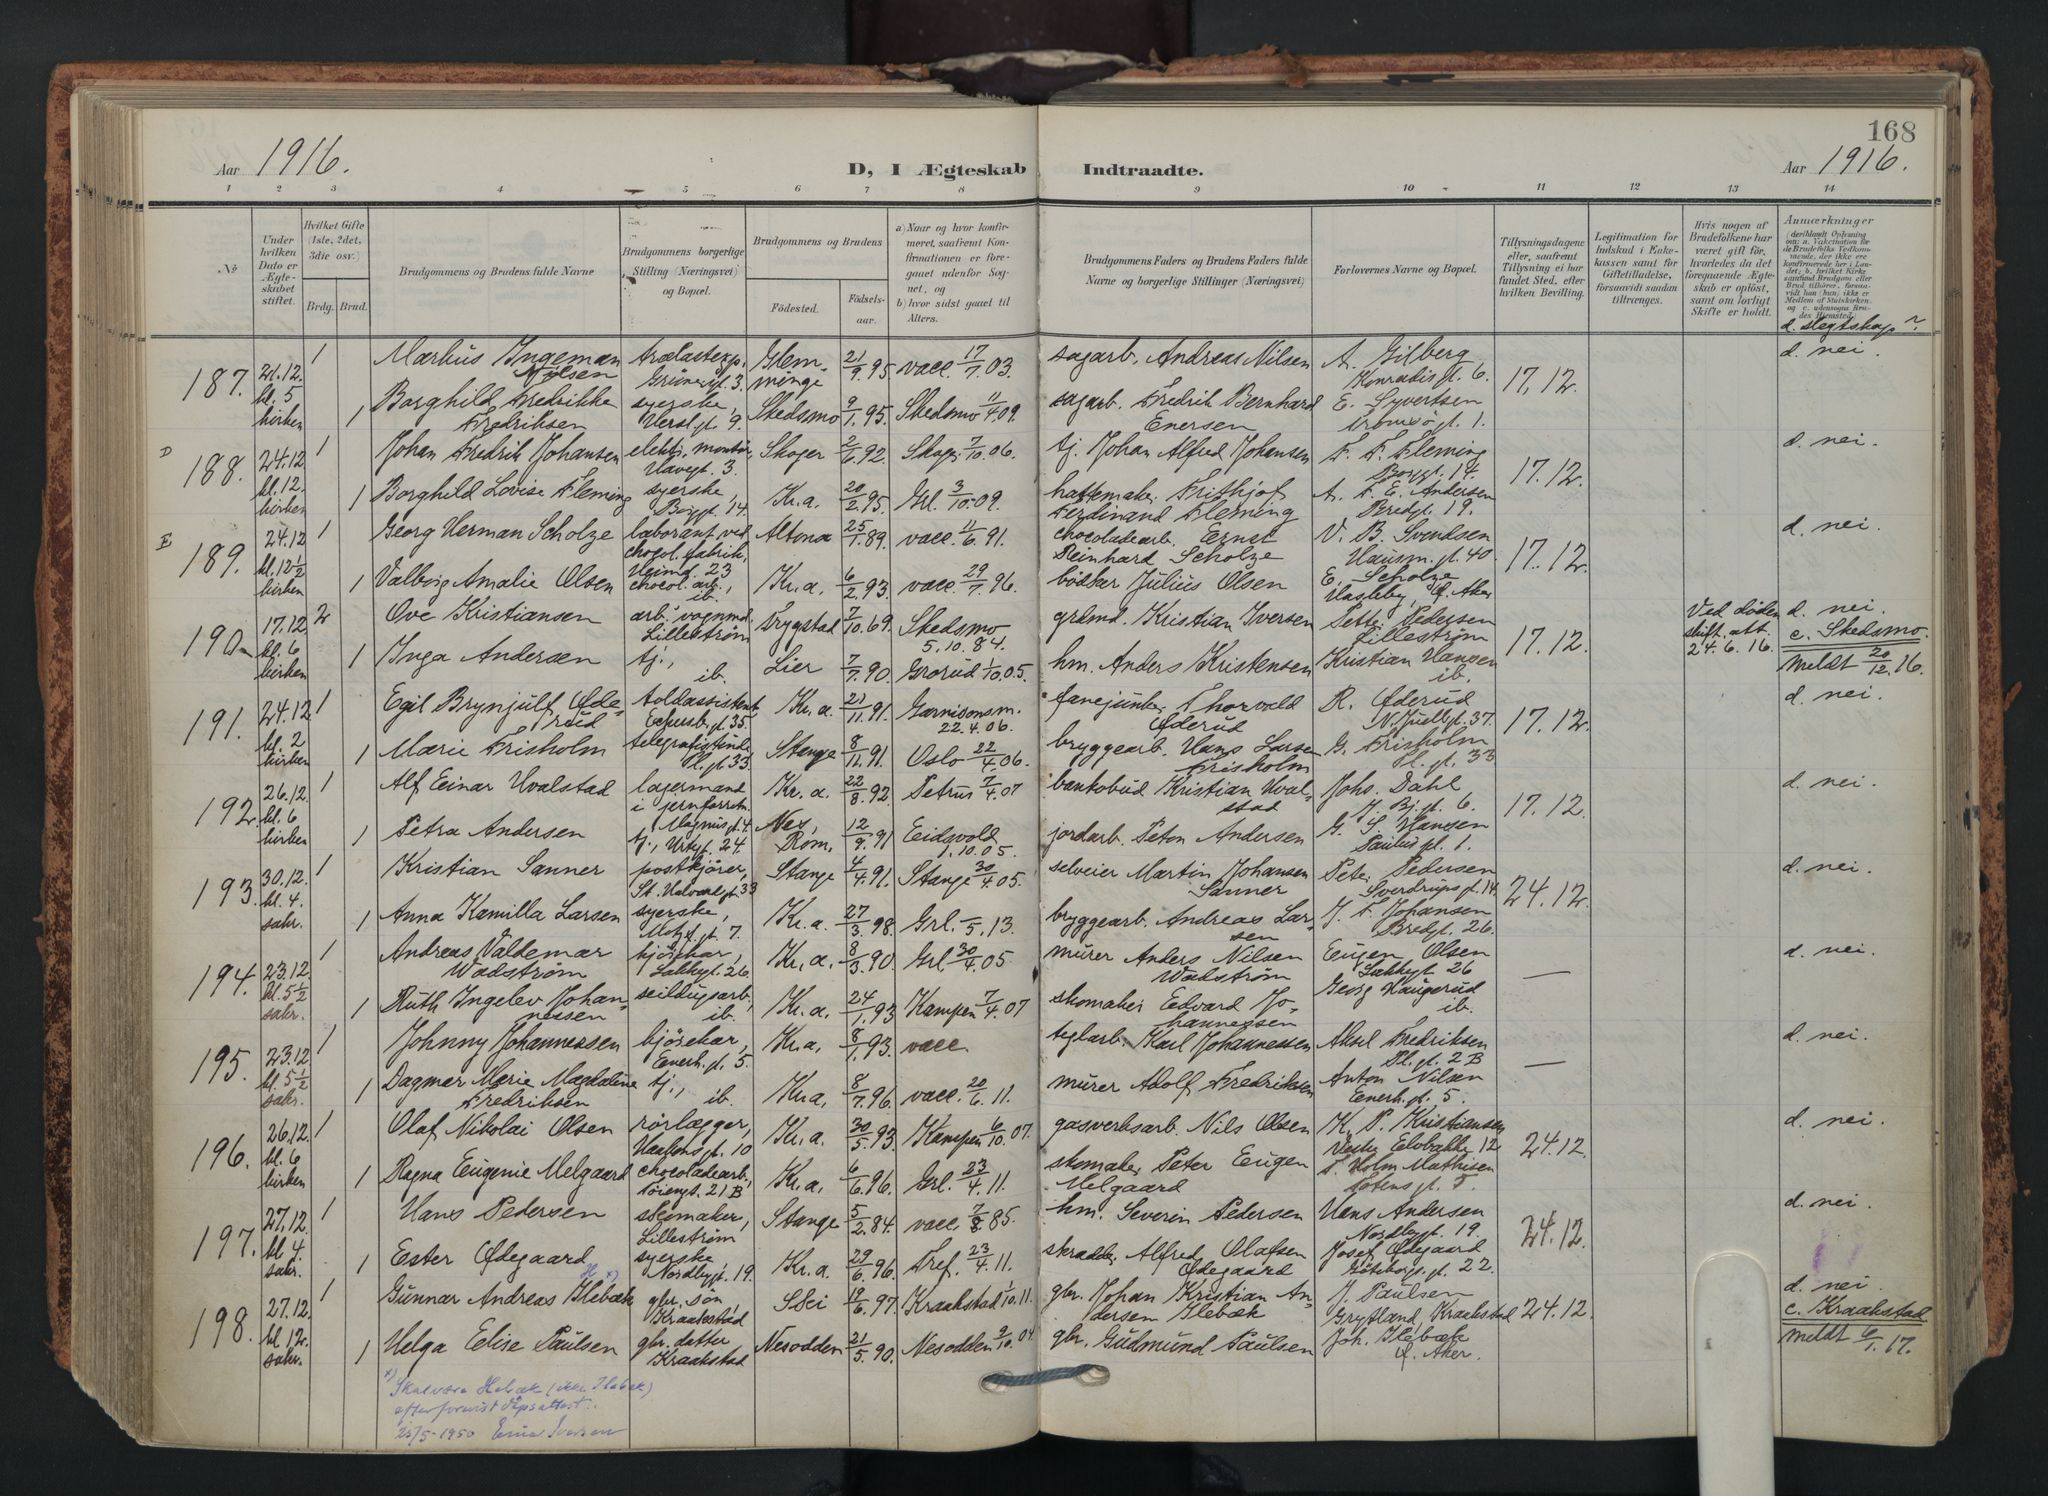 168
Aar 1916.
D, I Ægteskab Indtraadte.
Aar 1916.
1 2 3 4 5 6 7 8 9 10 11 12 13 14
No
Under hvilken Dato er Ægteskabet stiftet.
Hvilket Gifte (1ste, 2det, 3die osv.)
Brdg. Brud.
Brudgommens og Brudens fulde Navne
Brudgommens borgerlige Stilling (Næringsvei) og Bopæl.
Brudgommens og Brudens
Fødested. Fødselsaar.
a) Naar og hvor konfirmeret, saafremt Konfirmationen er foregaaet udenfor Sognet, og
b) hvor sidst gaaet til Alters.
Brudgommens Faders og Brudens Faders fulde Navne og borgerlige Stillinger (Næringsvei)
Forlovernes Navne og Bopæl.
Tillysningsdagene eller, saafremt Tillysning ei har fundet Sted, efter hvilken Bevilling.
Legitimation for Indskud i Enkekassen samt for Giftetilladelse, forsaavidt saadan tiltrænges.
Hvis nogen af Brudefolkene har været gift før, hvorledes da det foregaaende Ægteskab er opløst, samt om lovligt Skifte er holdt.
Anmærkninger
d. slegtskap?
187. 21.12. kl. 5 kirken
1 Markus Ingeman Nilsen trælastexp. Grünersgt. 3. Glemminge 21/9.95 vacc. 17/7.03. sagarb. Andreas Nilsen A. Gilberg Konradis gt. 6. 17.12. d. nei.
1 Borghild Fredrikke Fredriksen syerske, Herslgt. 9. Skedsmo 9/1.95. Skedsmo 11/4 09. sagarb. Fredrik Bernhard Enersen E. Syvertsen Tromsøgt. 1.
D 188. 24.12 kl. 12. kirken
1 Johan Fredrik Johansen elektr. montør, Havegt. 3. Skoger 2/6.92. Skoger 7/10.06. tj. Johan Alfred Johansen F. F. Fleming Borggt. 14. 17.12. d. nei.
1 Borghild Lovise Fleming syerske, Borggt. 14. Kr.a. 20/2.95. Grl. 3/10.09. hattemaker Frithjof Ferdinand Fleming A. F. E. Andersen Bredgt. 19.
E 189. 24.12 kl. 12½ kirken
1 Georg Herman Scholze laborant ved chocol. fabrik, Heimd. 23 Altona 25/1.89. vacc. 11/6.91. chocoladearb. Ernst Reinhard Scholze V. B. Svendsen Hausm. gt. 40. 17.12. d. nei.
1 Valborg Amalie Olsen chocol. arb., ib. Kr.a. 6/2.93. vacc. 29/7.96. bødker Julius Olsen E. Scholze Hasleby, Ø. Aker
190. 17.12 kl. 6 kirken
2 Ove Kristiansen arb. vognmd. Lillestrøm Trygstad 7/10.69. Skedsmo 5.10.84. grdmd. Kristian Iversen Petter Pedersen Lillestrøm 17.12. Ved døden skift. att. 24.6.16. d. nei. c. Skedsmo. meldt 20/12.16.
1 Inga Andersen tj., ib. Lier 7/7.90. Grorud 1/10.05. hm. Anders Kristensen Kristian Hansen ib.
191. 24.12. kl. 2 kirken
1 Egil Brynjulf Øderud toldassistent Expersb. gt. 35. Kr.a. 21/11.91. Garnisonsm. 22.4.06. fanejunker Thorvald Øderud R. Øderud N. Juelsgt. 37. 17.12. d. nei.
1 Marie Frisholm telegrafistinde Pl. gt. 33. Stange 8/11.91. Oslo 22/4.06. bryggearb. Hans Larsen Frisholm G. Frisholm Pl. gt. 33
192. 26.12. kl. 6 kirken
1 Alf Einar Hvalstad lagermand i jernforretn. Magnus gt. 4 Kr.a. 22/8.92 Petrus 7/4.07 bankobud Kristian Hvalstad Johs. Dahl J. Bj. gt. 6. 17.12. d. nei.
1 Petra Andersen tj., Urtgt. 24. Nes, Rom. 12/9.91 Eidsvold 1.10.05. jordarb. Peton Andersen G. S. Hansen Paulus pl. 1.
193. 30.12. kl. 4. sakr.
1 Kristian Sanner postkjører, St. Halvardsgt. 33 Stange 4/4.91. Stange 30/4.05. selveier Martin Johansen Sanner Peter Pedersen Sverdrupsgt. 14. 24.12. d. nei.
1 Anna Kamilla Larsen syerske, Motzf. gt. 7. Kr.a. 27/3.98. Grl. –/5.13. bryggearb. Andreas Larsen J. F. Johansen Bredgt. 26.
194. 23.12. kl. 5½ sakr.
1 Andreas Valdemar Wadstrøm kjørekar, Lakkgt. 26. Kr.a. 8/3.90. Grl. 30/4.05 murer Anders Nilsen Wadstrøm Eugen Olsen Lakkgt. 26 — d. nei.
1 Ruth Ingelev Johannessen seildugsarb. ib. Kr.a. 24/1.93 Kampen 7/4.07 skomaker Edvard Johannessen Georg Haugerud ib.
195. 23.12 kl. 5½ sakr.
1 Johnny Johannessen kjørekar, Enerh. gt. 5. Kr.a. 8/1.93. vacc. teglarb. Karl Johannessen Aksel Fredriksen Pl. gt. 2 B — d. nei.
1 Dagmar Marie Magdaline Fredriksen tj., ib. Kr.a. 8/7.96. vacc. 20/6.11. murer Adolf Fredriksen Anton Nilsen Enerh. gt. 5.
196. 26.12. kl. 6 kirken
1 Olaf Nikolai Olsen rørlægger, Haakons gt. 10 Kr.a. 30/5.93 Kampen 6/10.07. gasverksarb. Nils Olsen K. P. Kristiansen Vestre Elvbakke 12 24.12. d. nei.
1 Ragna Eugenie Melgaard chocoladearb., Tøiengt. 21 B Kr.a. 6/6.96. Grl. 23/4.11. skomaker Peter Eugen Melgaard T. Holm Mathisen Totens gt. 5.
197. 27.12. kl 4. sakr.
1 Hans Pedersen skomaker, Lillestrøm Stange 5/2.84. vacc. 7/8.85. hm. Severin Pedersen Hans Andersen Nordbygt. 19. 24.12. d. nei.
1 Ester Ødegaard syerske Nordbygt. 19. Kr.a. 29/6.96. Tref. 23/4.11. skrædder Alfred Olafsen Ødegaard Josef Ødegaard Göteborgs gt. 22.
198. 27.12. kl 12. sakr.
1 Gunnar Andreas Ilebæk H x) gbr. søn Kraakstad Skei 19/6.97. Kraakstad 1/10.11. gbr. Johan Kristian Andersen Ilebæk J. Paulsen Grytland, Kraakstad 24.12. d. nei. c. Kraakstad meldt 6/1.17.
1 Helga Elise Paulsen gbr. datter Kraakstad Nesodden 21/5.90. Nesodden 2/10.04 gbr. Gudmund Paulsen Joh. Ilebæk Ø. Aker.
x) Skal være Hebæk (ikke Ilebæk)
efter forevist dåpsattest.
25/5-1950 Iversen